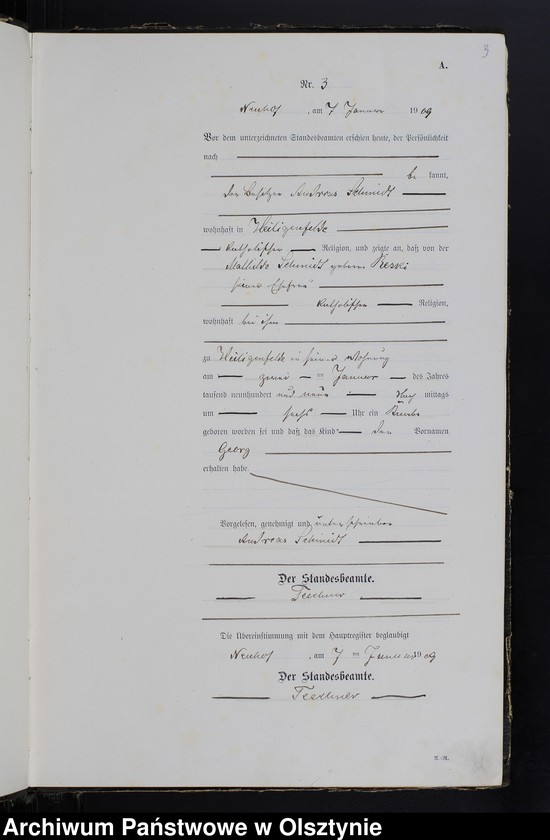 3
A.
Nr. 3
Neuhof, am 7 Januar 1909
Vor dem unterzeichneten Standesbeamten erschien heute, der Persönlichkeit
nach
be kannt,
der Besitzer Andreas Schmidt
wohnhaft in Heiligenfelde
katholischer Religion, und zeigte an, daß von der
Mathilde Schmidt geborene Reski
seiner Ehefrau
katholischer Religion,
wohnhaft bei ihm
zu Heiligenfelde in seiner Wohnung
am zwei ten Januar des Jahres
tausend neunhundert und neun Nach mittags
um sechs Uhr ein Knabe
geboren worden sei und daß das Kind den Vornamen
Georg
erhalten habe.
Vorgelesen, genehmigt und unterschrieben
Andreas Schmidt
Der Standesbeamte.
Teschner
Die Übereinstimmung mit dem Hauptregister beglaubigt
Neuhof, am 7 ten Januar 1909
Der Standesbeamte.
Teschner
Archiwum Państwowe w Olsztynie